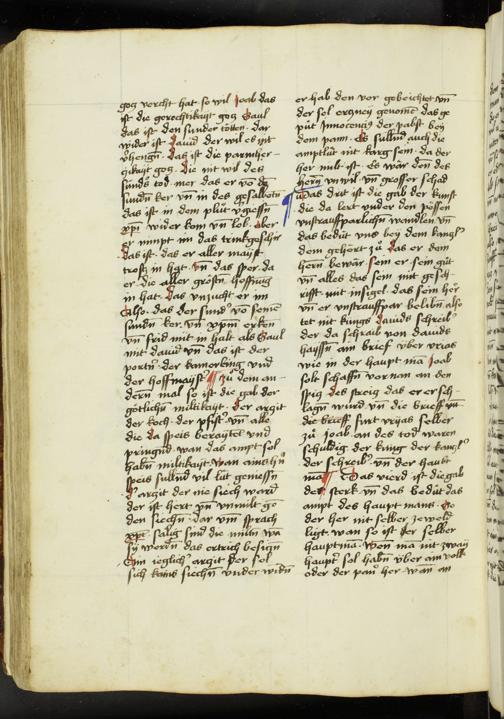 gotz vorcht hat so wil Joab das
ist die gerechtikayt gotz Saul
das ist den sunder totten · dar
wider ist Dauid der wil es nit
das ist die parmher
tzikayt gotz · Die nit wil des
sunds tod mer das er vo den
sunden ker vn in des
das ist in dem plut
xpi wider kom vn lob · Aber
er nympt im das trinkgeschir
das ist · das er aller mayst
trost in hat vn das sper da
er die aller grosten hoffnug
in hat · das er im
Also · das der sund vo seinen
sunden ker vn xpm erken
vn frid mit in halt als Saul
mit dauid vn das ist der
portner der kamerling vnd
der hoffmayst Zu dem an
dern mal so ist die gab der
gotlichn miltikayt · der artzit
der koch · der pfist vn alle
die da speis beraytet vnd
pringnd wan das ampt sol
habn miltikayt wan
speis sulnd vil lut geniessn
Der artzit der nie siech ward
der ist hert vn vnmilt ge
den siechn · dar vm sprach
xpt · salig sind die miltn wan
sy werdn das ertrich besitzn
Ein ieglich artzit der sol
sich kains siechn vnder windn
er hab den vor gebeichtet vn
der sol ertzney genomen das ge
put Innocentius der pabst bey
dem pann · Es sullnd auch die
amptlut nit karg sein · da der
her milt ist · es wär den des
hern vnwil vn grosser schad
Das drit ist die gab der kunst
die da lert vnder den possen
vnstraffparlichn wandlen vn
das bedut vns bey dem kantzler
dem gehort zu das er dem
hern bewar sein er sein gut
vn alles das sein mit gesch
rifft mit insigel · das sein her
vn er vnstrauffpar belibn also
tet nit kungs dauids schreiber
der da schraib von dauids
hayssn am brief vber vrias
wie in der haupt man Joab
solt schaffn vornan an den
spitz des streitz das er er sch
lagn wurd vn die brieff
die brieff furt vrias selber
zu Joab · an des tod waren
schuldig der kung der kantzler
der schreiber vn der haubt
man Das vierd ist die gab
der sterk vn das bedut das
ampt des haupt mans · So
der her nit selber
ligt wan so ist der selber
hauptman · Won man nit zwen
haupter sol habn vber ain volk
oder der paur her · wan an